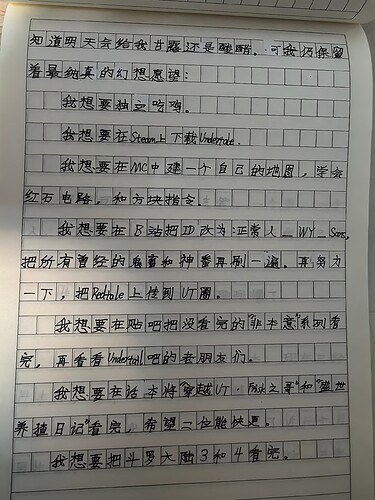 知道明天会给我甘露还是酸醋。可我仍保留
着最纯真的幻想愿望：
我想要独立吃鸡。
我想要在Steam上下载Undertale.
我想要在MC中建一个自己的地图，学会
红石电路，和方块指令.
我想要在B站把ID改为：正常人_WY_Sans,
把所有曾经的鬼畜和神番再刷一遍。再努力
一下，把Redtale上传到UT圈。
我想要在贴吧把没看完的“非本意”系列看
完，再看看Undertail吧的老朋友们。
我想要在话本将“穿越UT·之哥”和“盛世
养猹日记”看完，希望二位能快更。
我想要把斗罗大陆3和4看完。